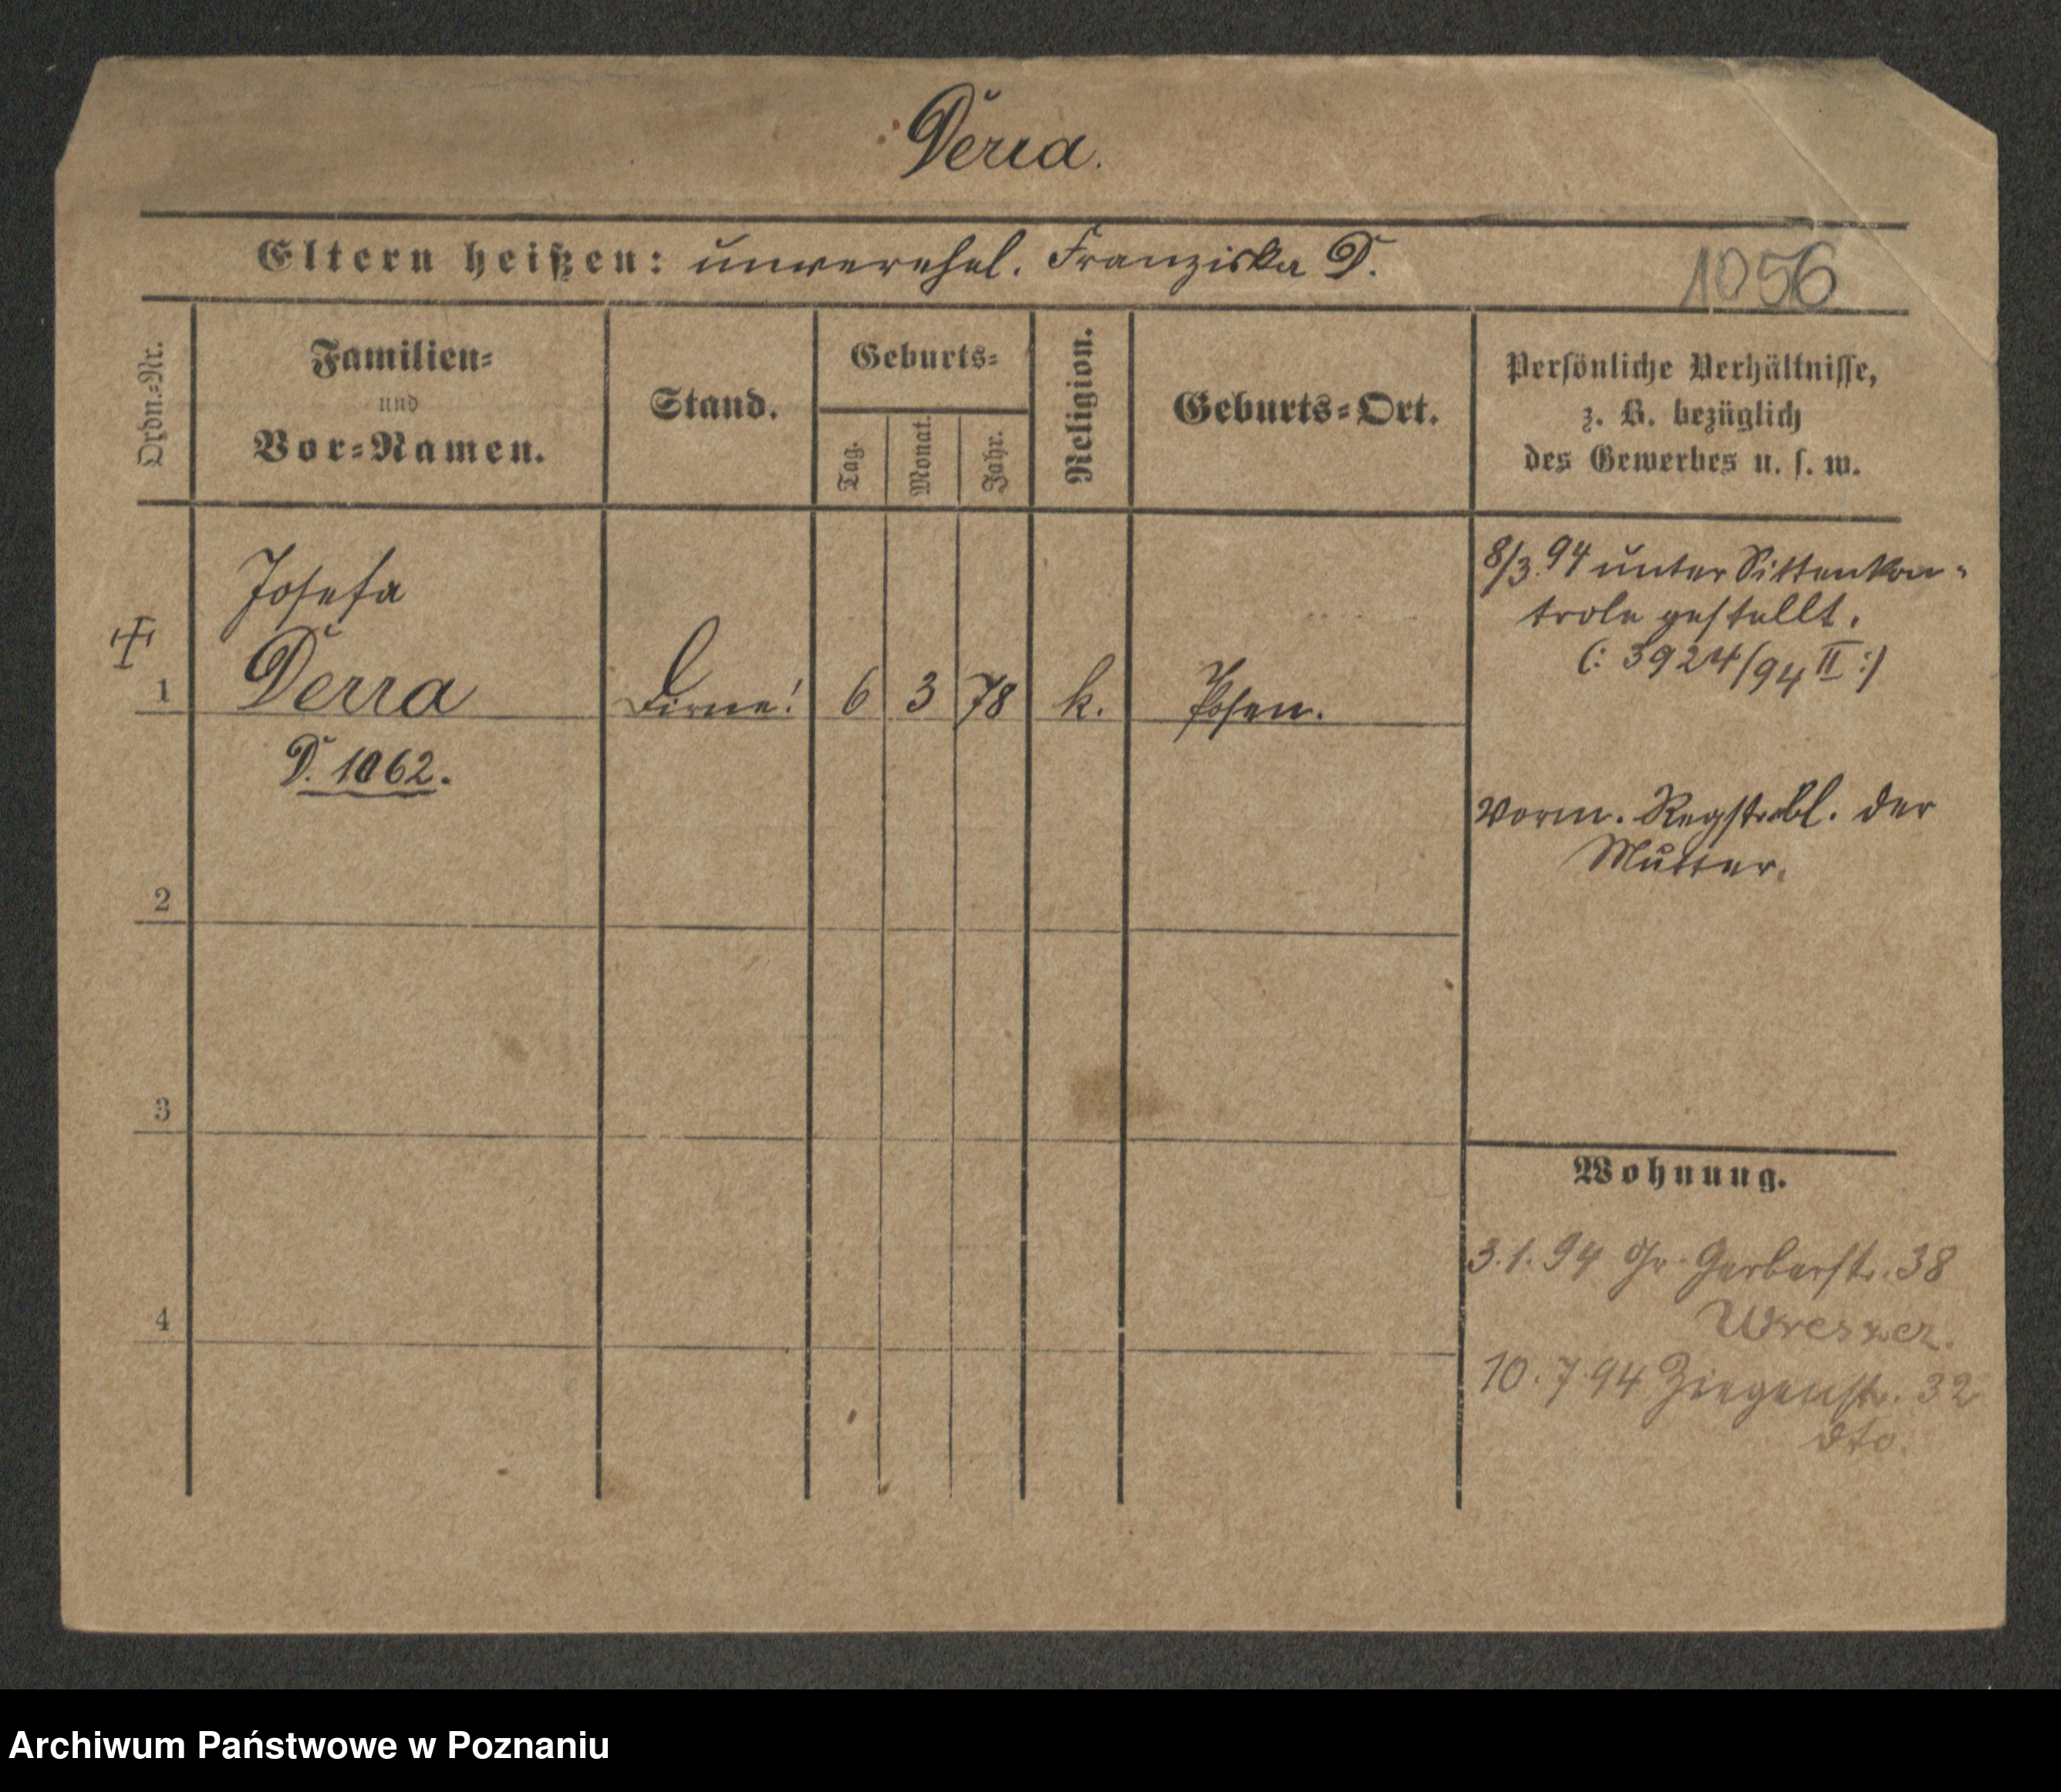 Derra.
Eltern heißen: unverehel. Franziska D.
1056
Ordn.-Nr.
Familien-
und
Vor-Namen.
Stand.
Geburts-
Tag.
Monat.
Jahr.
Religion.
Geburts-Ort.
Persönliche Verhältnisse,
z. B. bezüglich
des Gewerbes u. s. w.
1
Josefa
Derra
Dirne!
6
3
78
k.
Posen.
8/3.94 unter Sittenkon-
trole gestellt.
(: 3924/94 II :)
D. 1062.
Vorm. Regstrbl. der
Mutter.
2
3
4
Wohnung.
3.1.94 Gr. Gerberstr. 38
10.7.94 Ziegenstr. 32
dto.
Archiwum Państwowe w Poznaniu